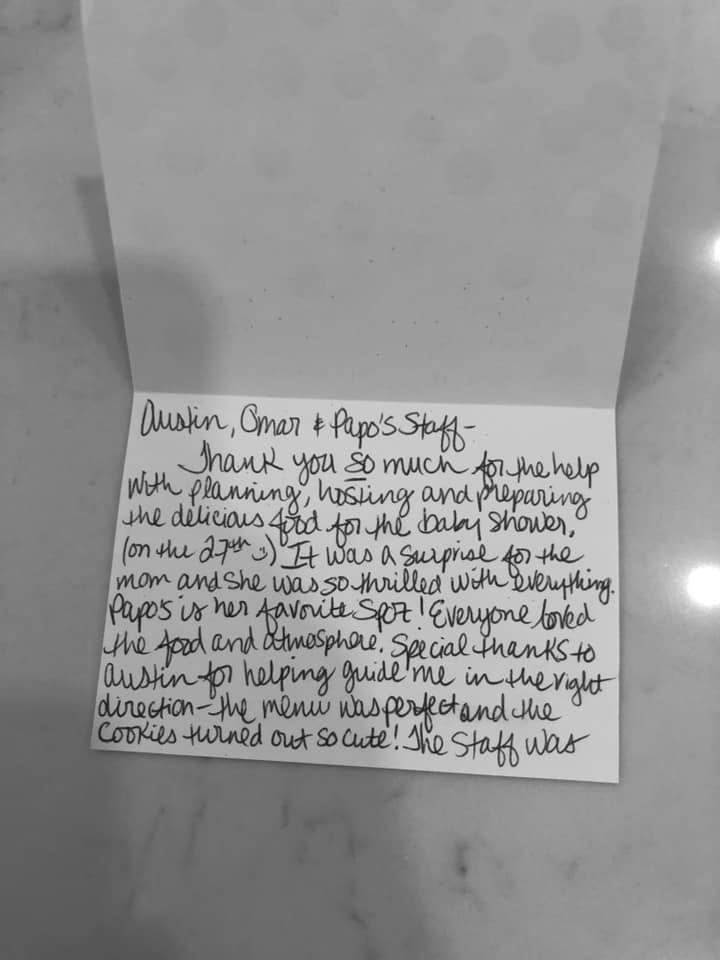 Austin, Omar & Papo's Staff-
Thank you so much for the help
with planning, hosting and preparing
the delicious food for the baby shower,
(on the 27th :)) It was a surprise for the
mom and she was so thrilled with everything.
Papo's is her favorite spot! Everyone loved
the food and atmosphere. Special thanks to
Austin for helping guide me in the right
direction - the menu was perfect and the
cookies turned out so cute! The Staff was